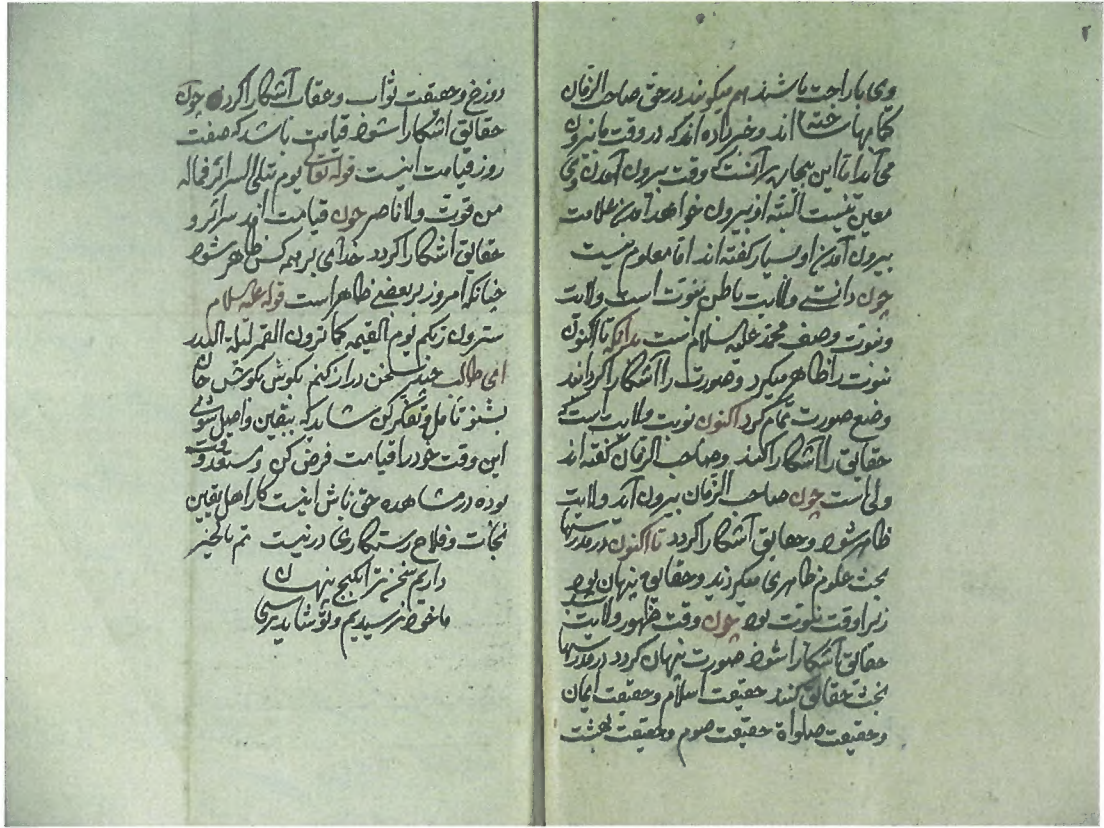 وی با راحت باشند هم میگویند در حق صاحب الزمان
کتابها ساخته اند و خبر داده اند که در وقت ما بیرون
می آید تا این بیچاره بر آنست که وقت بیرون آمدن وی
معین نیست البته او بیرون خواهد آمدن علامت
بیرون آمدن او بسیار گفته اند اما معلوم نیست
چون دانستی ولایت باطن نبوت است ولایت
و نبوت وصف محمد علیه السلام است بدانکه تا اکنون
نبوت را ظاهر میکرد و صورت را آشکارا گردانند
وضع صورت تمام کرد اکنون نوبت ولایت است که
حقایق را آشکارا کند و صاحب الزمان گفته اند
ولی است چون صاحب الزمان بیرون آید ولایت
ظاهر شود و حقایق آشکارا گردد تا اکنون در مدرسها
بحث علوم ظاهری میکردند و حقایق پنهان بود
زیرا وقت نبوت بود چون وقت ظهور ولایت باشد
حقایق آشکارا شود صورت پنهان گردد در مدرسها
بحث حقایق کنند حقیقت اسلام و حقیقت ایمان
و حقیقت صلواة حقیقت صوم و حقیقت بهشت
دوزخ و حقیقت ثواب و عقاب آشکارا گردد چون
حقایق اشکارا شود قیامت باشد که صفت
روز قیامت اینست قوله تعالی یوم تبلی السرائر فماله
من قوت ولا ناصر چون قیامت اید سرائر و
حقایق اشکارا گردد خدای بر همه کس ظاهر شود
چنانکه امروز بر بعضی ظاهر است قوله علیه السلام
سترون ربکم یوم القیمه کما ترون القمر لیلة البدر
ای طالب چند سخن دراز کنم بکوش بکوش جان
بشنو تامل و تفکر کن شاید که بیقین واصل شوی
این وقت خود را قیامت فرض کن و مستعد وقت
بوده در مشاهده حق باش اینست کار اهل یقین
نجات و فلاح رستکاری درنیست تم بالخیر
دادیم ترا بگنج پنهان
ما خود نرسیدیم و تو شاید برسی